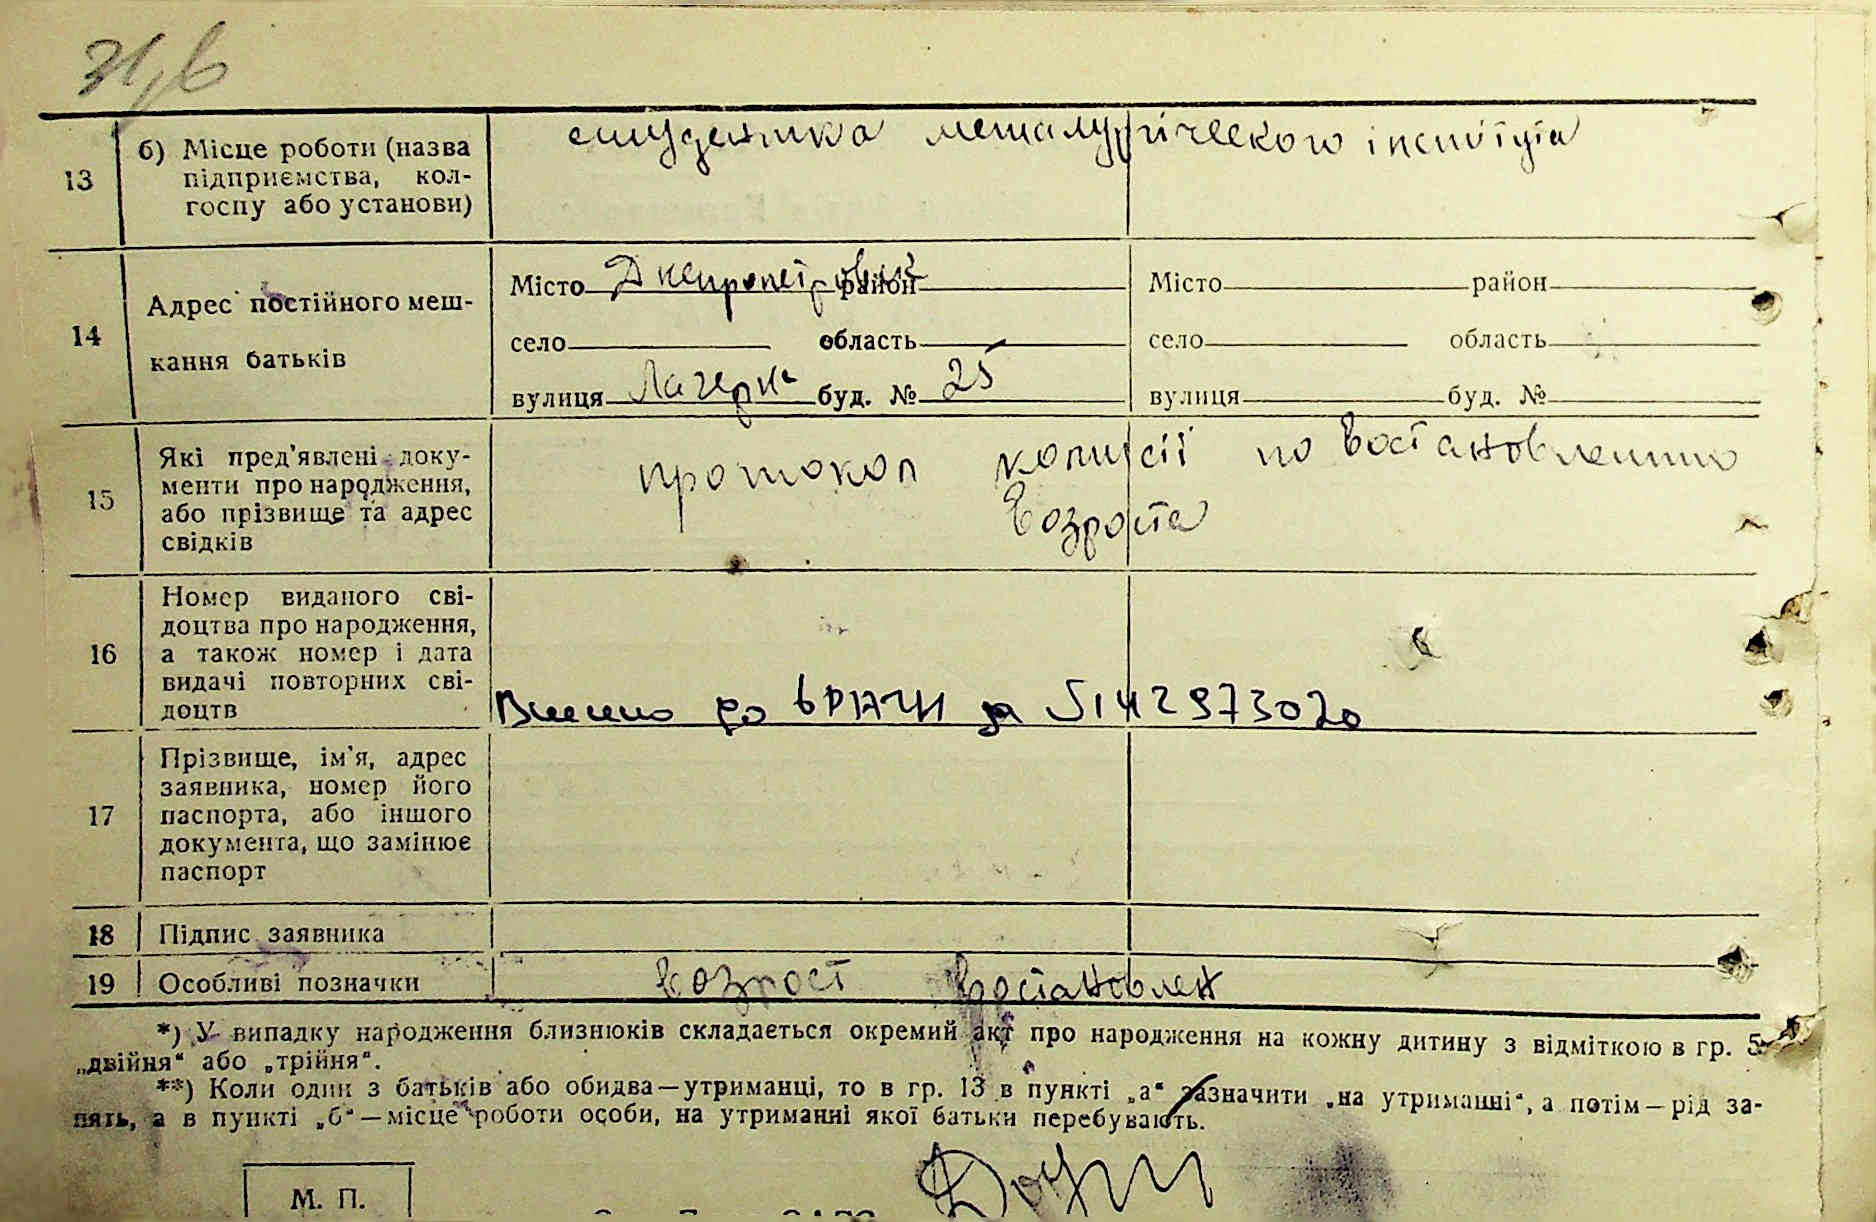 31,б
13 б) Місце роботи (назва
підприємства, кол-
госпу або установи)
студентка металургіческого інститута
14 Адрес постійного меш-
кання батьків
Місто Днепропетровськ район Місто район
село область село область
вулиця Лагерн буд. № 25 вулиця буд. №
15 Які пред'явлені доку-
менти про народження,
або прізвище та адрес
свідків
протокол комисії по востановлению
возроста
16 Номер виданого сві-
доцтва про народження,
а також номер і дата
видачі повторних сві-
доцтв
Внесено до ВРАЧИ за 5142973020
17 Прізвище, ім'я, адрес
заявника, номер його
паспорта, або іншого
документа, що замінює
паспорт
18 Підпис заявника
19 Особливі позначки
возрост востановлен
*) У випадку народження близнюків складається окремий акт про народження на кожну дитину з відміткою в гр. 5
„двійня“ або „трійня“.
**) Коли один з батьків або обидва—утриманці, то в гр. 13 в пункті „а“ зазначити „на утриманні“, а потім—рід за-
нять, а в пункті „б“—місце роботи особи, на утриманні якої батьки перебувають.
М. П.